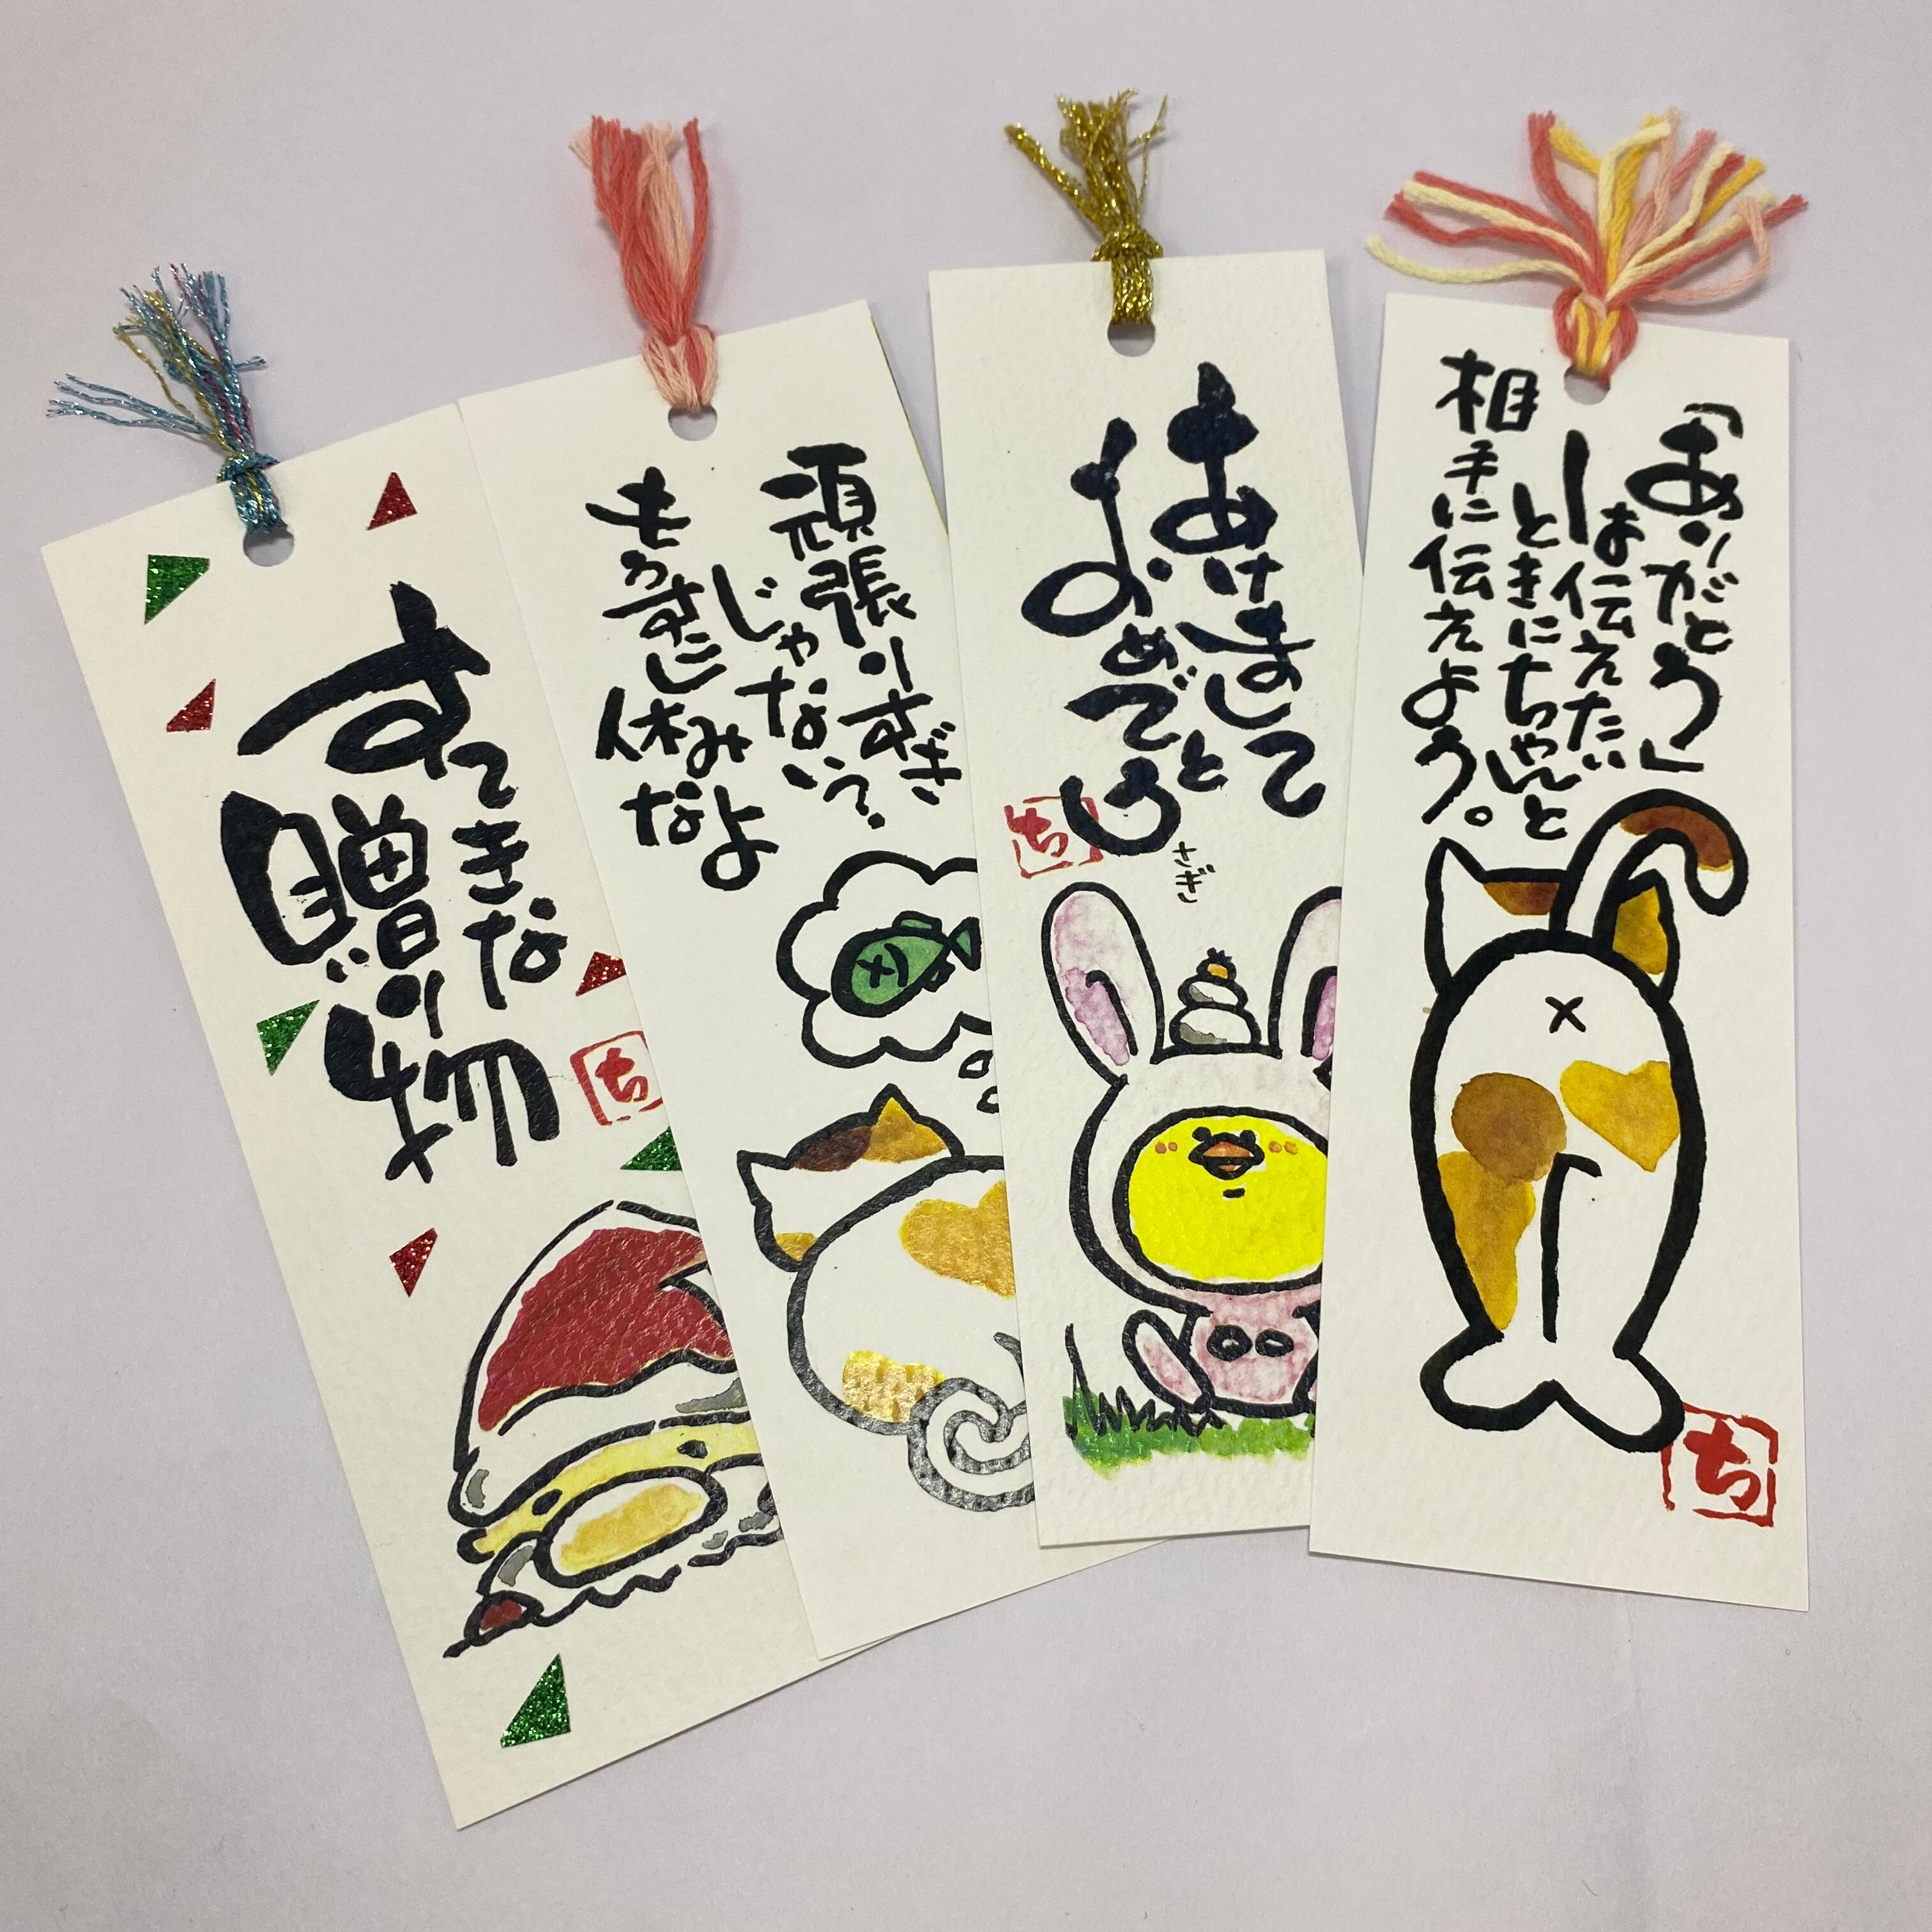 すてきな
贈り物
ち
頑張りすぎ
じゃない？
もう少し休みなよ
あけまして
おめでとう
さぎ
ち
「ありがとう」
は伝えたい
ときにちゃんと
相手に伝えよう。
ち